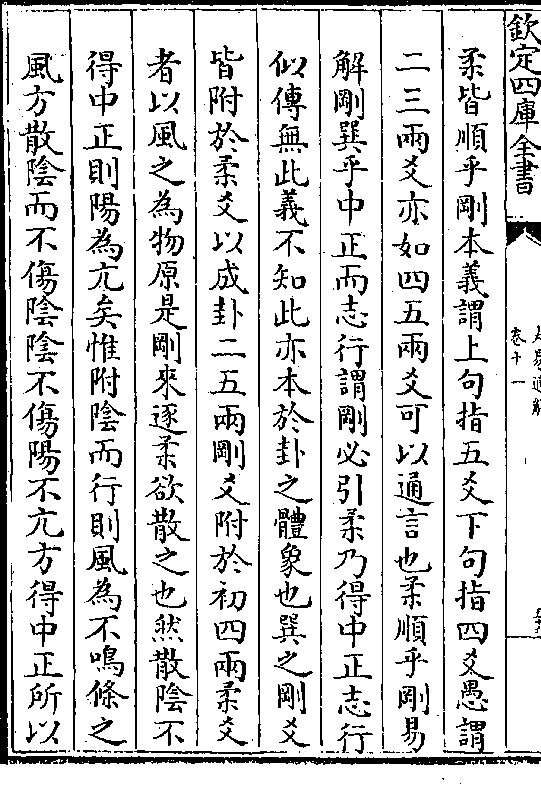 欽定四庫全書
卷十一
柔皆順乎剛本義謂上句指五爻下句指四爻愚謂
二三兩爻亦如四五兩爻可以通言也柔順乎剛易
解剛巽乎中正而志行謂剛必引柔乃得中正志行
似傳無此義不知此亦本於卦之體象也巽之剛爻
皆附於柔爻以成卦二五兩剛爻附於初四兩柔爻
者以風之為物原是剛來逐柔欲散之也然散陰不
得中正則陽為亢矣惟附陰而行則風為不鳴條之
風方散陰而不傷陰陰不傷陽不亢方得中正所以